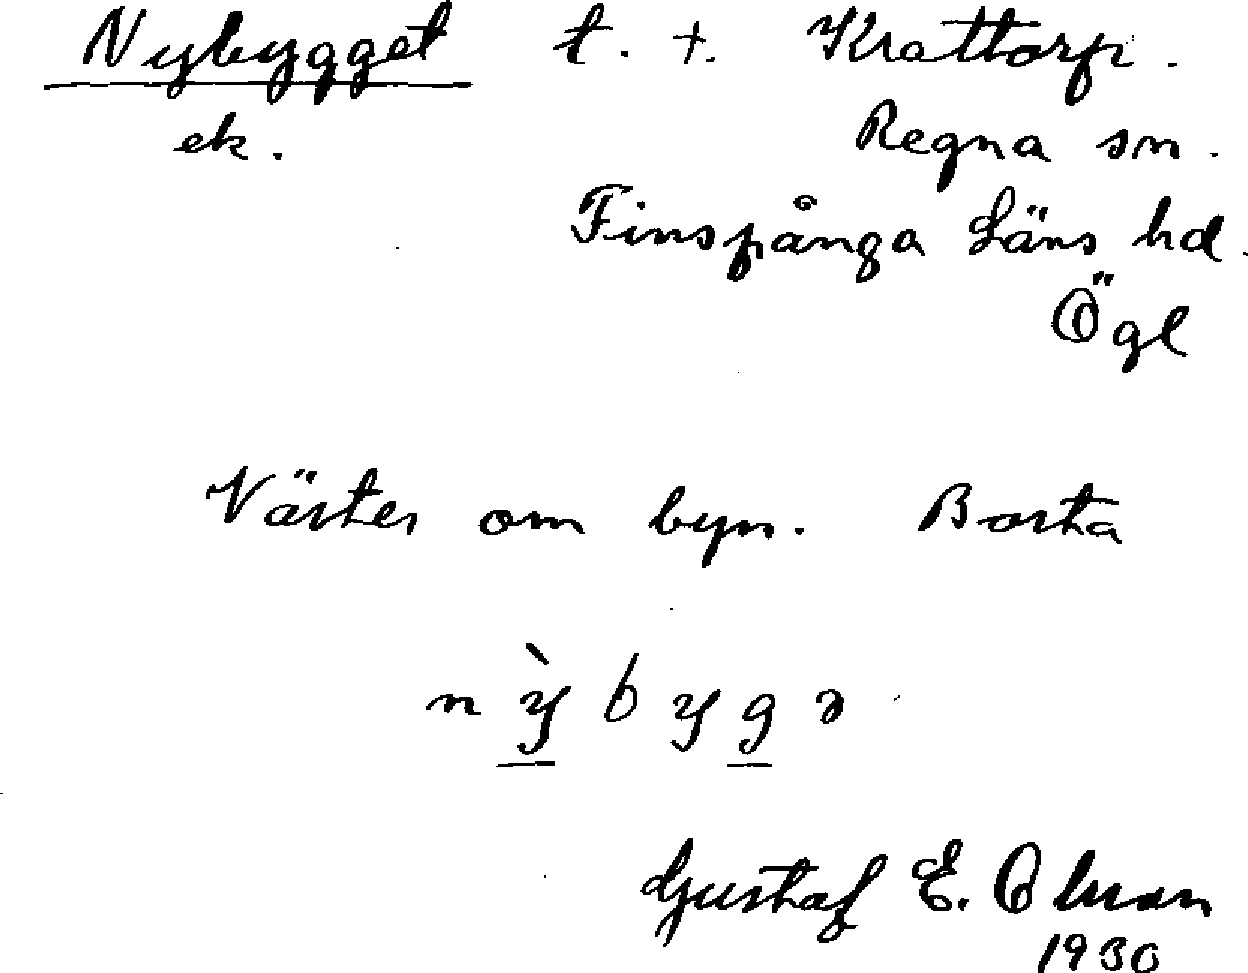 Nybygget t. +. Krattorp.
ek. Regna sn.
Finspånga Läns hd.
Ögl
Väster om byn. Borta
nỳbygə
Gustaf E. Olsson
1930